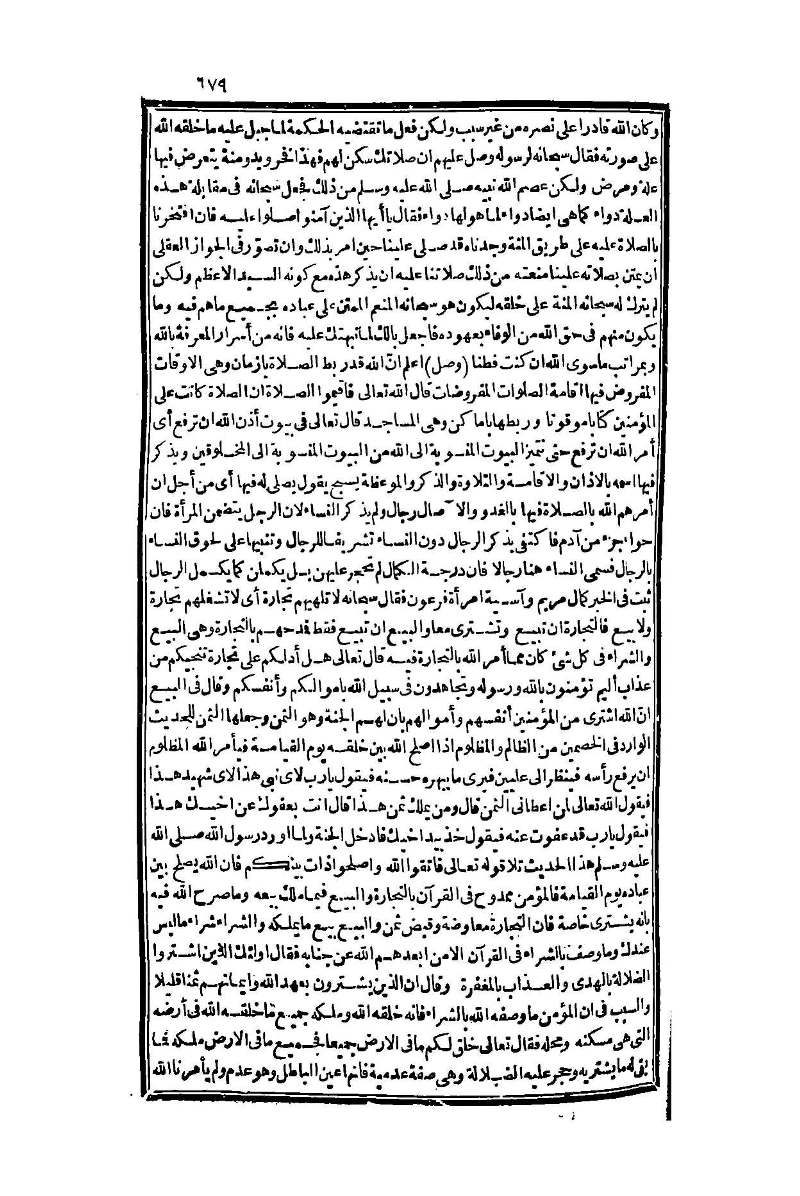 ٦٧٩
وكان الله قادرا على نصره من غير سبب ولكن فعل ما تقتضيه الحكمة لما جبل عليه ما خلقه الله
على صورته فقال سبحانه لرسوله وصل عليهم ان صلاتك سكن لهم فهذا نفر ويد ومنة يتعرض فيها
علة ومرض ولكن عصم الله نبيه صلى الله عليه وسلم من ذلك فجعل سبحانه فى مقابلة هذه
العلة دواء كما هى ايضا دواء لما هو لها دواء فقال يا أيها الذين آمنوا صلوا عليه فان افتخرنا
بالصلاة عليه على طريق المنة وجدناه قد صلى علينا حين امر بذلك وان تصور فى الجواز العقلى
أن يمتن بصلاته علينا منعته من ذلك صلاتنا عليه ان يذكر هذه مع كونه السيد الاعظم ولكن
لم يترك له سبحانه المنة على خلقه ليكون هو سبحانه المنعم الممتن على عباده بجميع ما هم فيه وما
يكون منهم فى حق الله من الوفاء بعهوده فاجعل بالك لما نبهتك عليه فانه من أسرار المعرفة بالله
وبمراتب ما سوى الله ان كنت فطنا (وصل) اعلم ان الله قد ربط الصلاة بازمان وهى الاوقات
المفروض فيها اقامة الصلوات المفروضات قال الله تعالى فاقيموا الصلاة ان الصلاة كانت على
المؤمنين كتابا موقوتا وربطها باماكن وهى المساجد قال تعالى فى بيوت أذن الله ان ترفع أى
أمر الله ان ترفع حتى تتميز البيوت المنسوبة الى الله من البيوت المنسوبة الى المخلوقين ويذكر
فيها اسمه بالاذان والاقامة والتلاوة والذكر والموعظة يسبح يقول يصلى له فيها أى من أجل ان
أمرهم الله بالصلاة فيها بالغدو والآصال رجال ولم يذكر النساء لان الرجل يتضمن المرأة فان
حواء جزء من آدم فاكتفى بذكر الرجال دون النساء تشريفا للرجال وتنبيها على لحوق النساء
بالرجال فسمى النساء هنا رجالا فان درجة الكمال لم تحجر عليهن بل يكملن كما يكمل الرجال
ثبت فى الخبر كمال مريم وآسية امرأة فرعون فقال سبحانه لا تلهيهم تجارة أى لا تشغلهم تجارة
ولا بيع فالتجارة ان تبيع وتشترى معا والبيع ان تبيع فقط فمدحهم بالتجارة وهى البيع
والشراء فى كل شئ كان مما أمر الله بالتجارة فيه قال تعالى هل أدلكم على تجارة تنجيكم من
عذاب أليم تؤمنون بالله ورسوله وتجاهدون فى سبيل الله باموالكم وأنفسكم وقال فى البيع
ان الله اشترى من المؤمنين أنفسهم وأموالهم بان لهم الجنة وهو الثمن وجعلها الثمن للحديث
الوارد فى الخصمين من الظالم والمظلوم اذا اصلح الله بين خلقه يوم القيامة فيأمر الله المظلوم
ان يرفع رأسه فينظر الى عليين فيرى ما يبهره حسنه فيقول يا رب لاى نبى هذا لاى شهيد هذا
فيقول الله تعالى لمن اعطانى الثمن قال ومن يملك ثمن هذا قال انت بعفوك عن اخيك هذا
فيقول يا رب قد عفوت عنه فيقول خذ بيد اخيك فادخل الجنة ولما اورد رسول الله صلى الله
عليه وسلم هذا الحديث تلا قوله تعالى فاتقوا الله واصلحوا ذات بينكم فان الله يصلح بين
عباده يوم القيامة فالمؤمن ممدوح فى القرآن بالتجارة والبيع فيما ملك بيعه وما صرح الله فيه
بانه يشترى خاصة فان التجارة معاوضة وقبض ثمن والبيع بيع ما يملكه والشراء شراء ما ليس
عندك وما وصف بالشراء فى القرآن الا من ابعدهم الله عن جنابه فقال اولئك الذين اشتروا
الضلالة بالهدى والعذاب بالمغفرة وقال ان الذين يشترون بعهد الله وايمانهم ثمنا قليلا
والسبب فى ان المؤمن ما وصفه الله بالشراء فانه خلقه الله وملكه جميع ما خلقه الله فى أرضه
التى هى مسكنه ومحله فقال تعالى خلق لكم ما فى الارض جميعا فجميع ما فى الارض ملكه فما
بقى له ما يشتريه وحجر عليه الضلالة وهى صفة عدمية فانها عين الباطل وهو عدم ولم يأمرنا الله